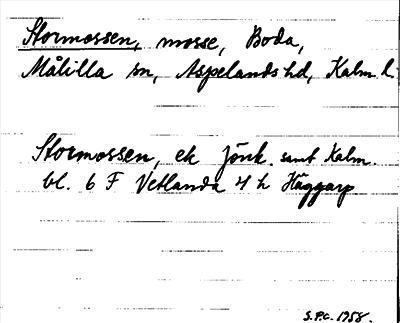 Stormossen, mosse, Boda,
Målilla sn, Aspelands hd, Kalm. l.
Stormossen, ek Jönk. samt Kalm.
bl. 6 F Vetlanda 4 h Häggarp
S.P.C. 1958.